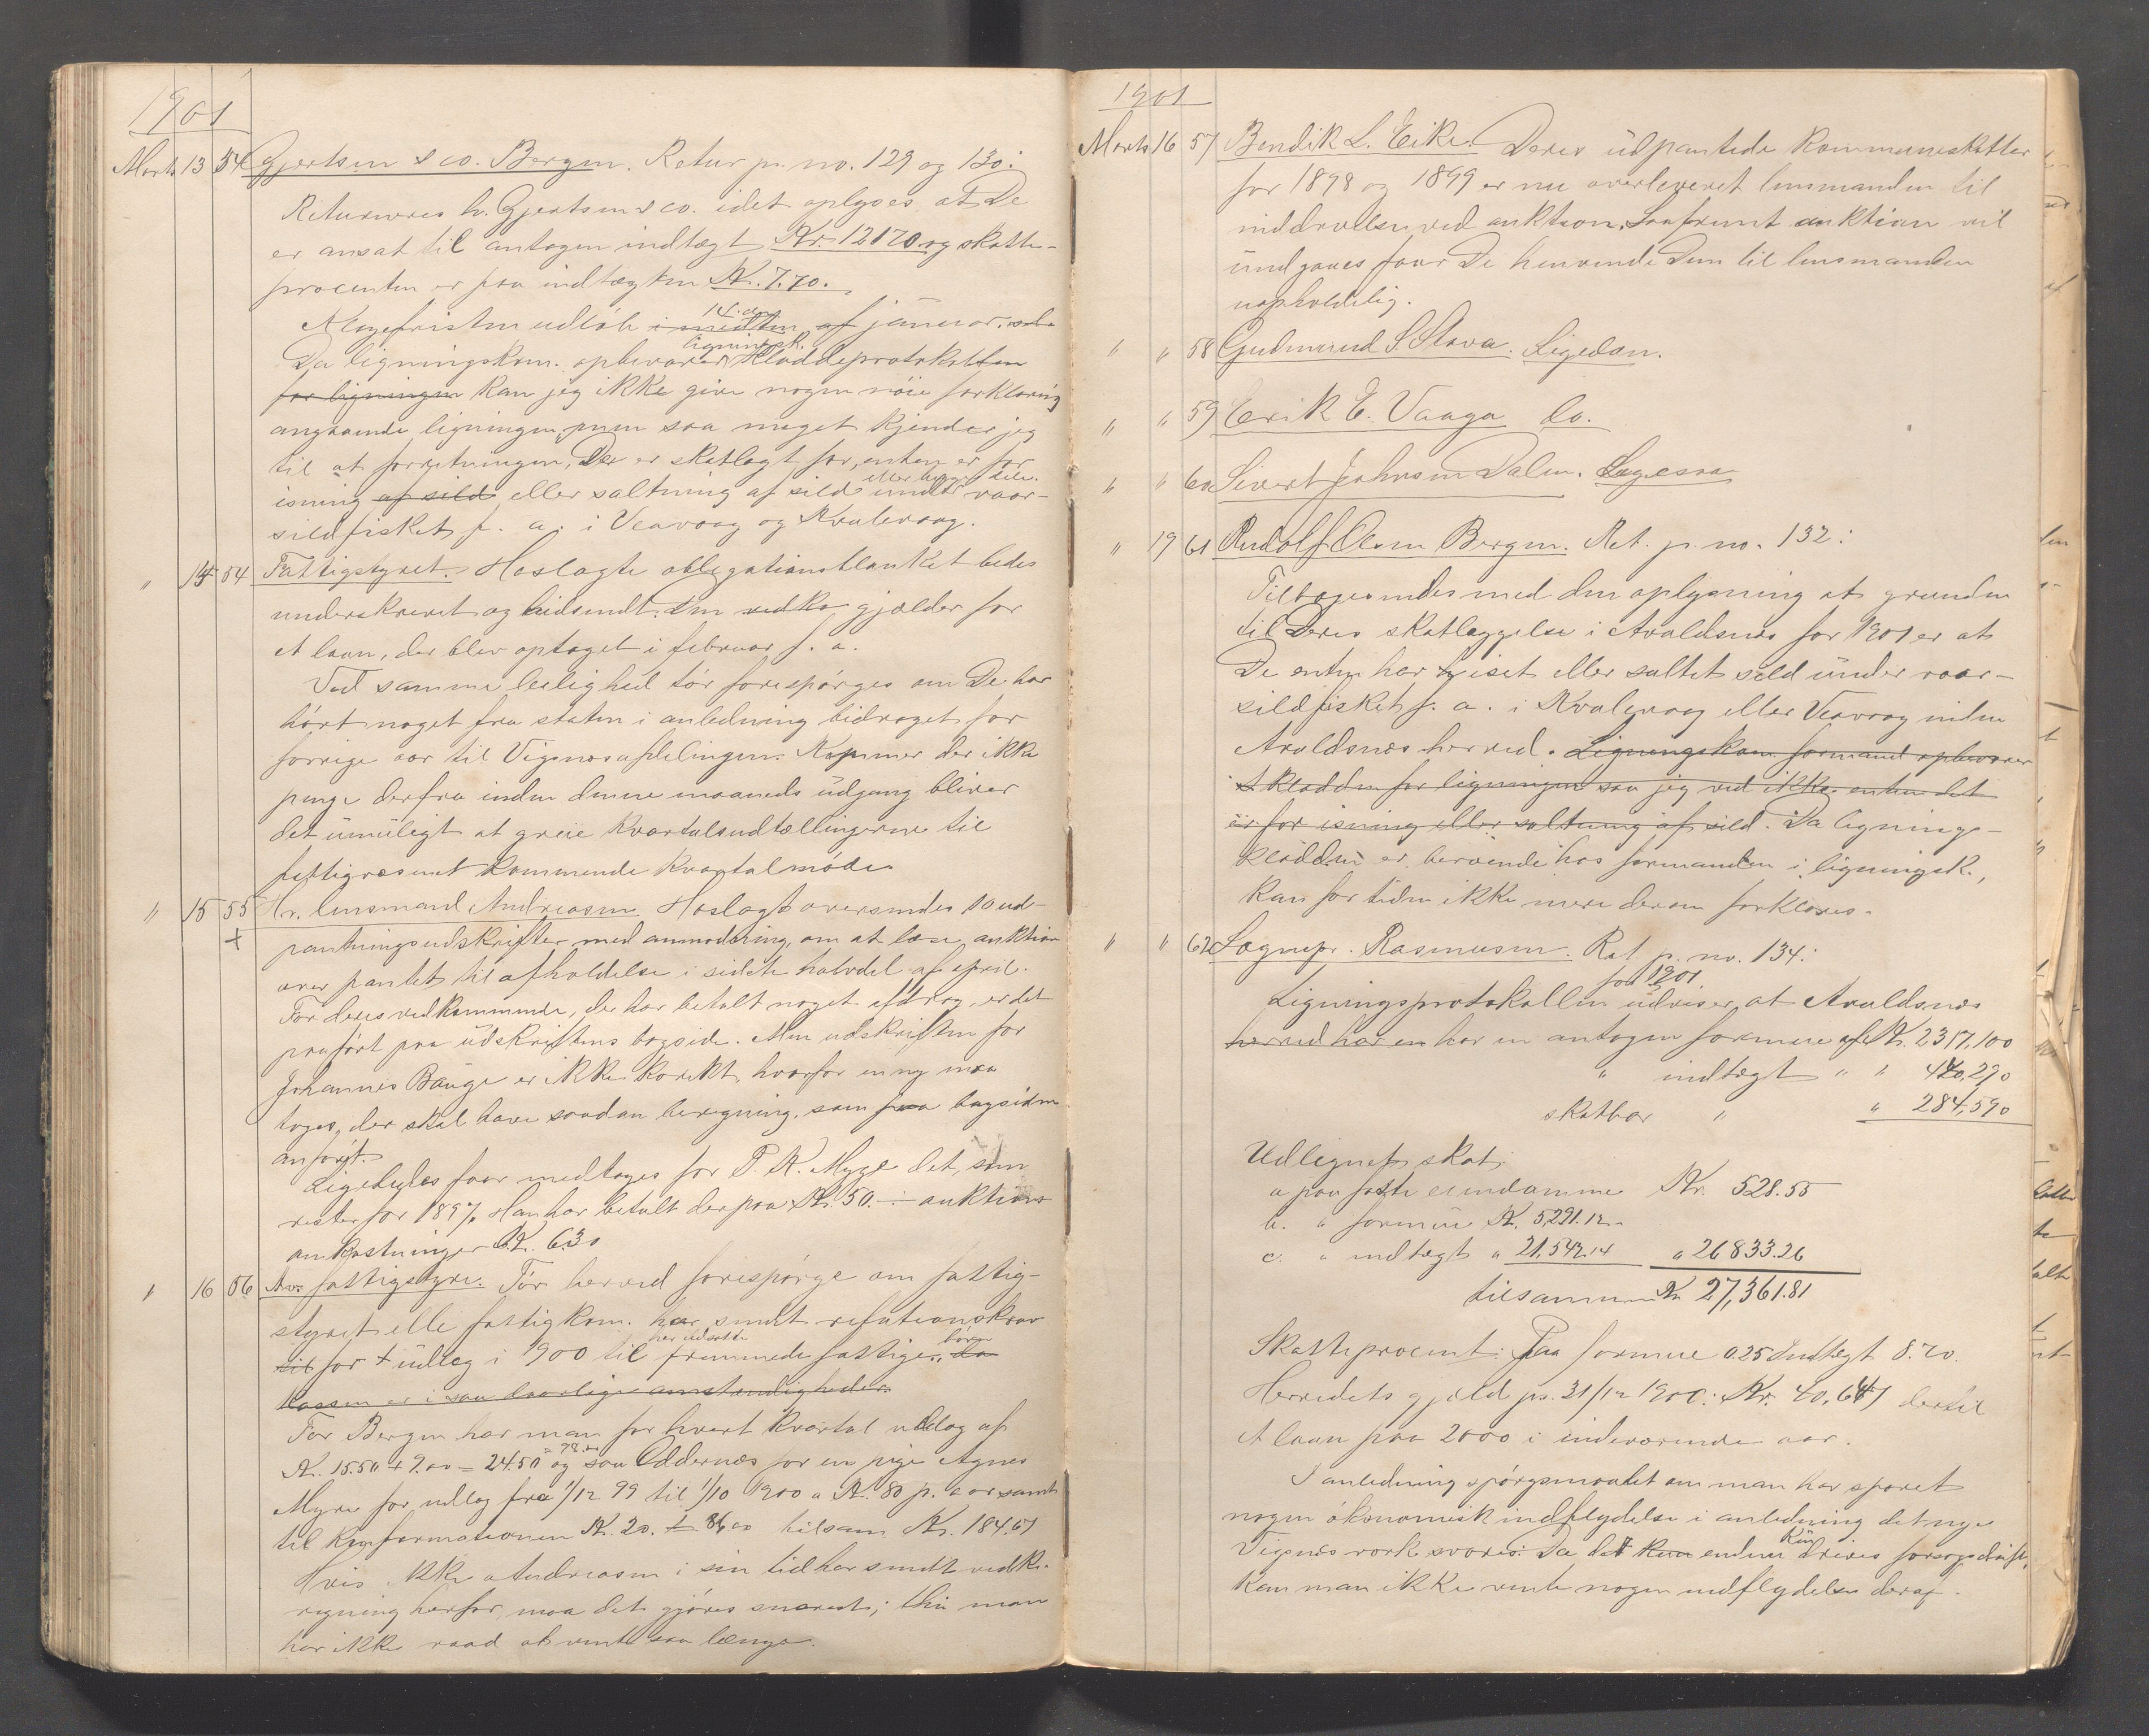 1901
Marts 13 54 Gjertsen & co. Bergen. Retur p. no. 129 og 130:
Returneres hr. Gjertsen & co. idet oplyses at De
er ansat til antagen indtægt Kr. 12170 og skatte-
procenten er paa indtægten Kr. 7.70.
Klagefristen udløb i midten 14. dn af januar.
Da ligningskom. opbevarer ligningsk. kladdeprotokollen
for ligningen kan jeg ikke give nogen nöie forklaring
angaaende ligningen, men saa meget kjender jeg
til at forretningen, De er skatlagt for, enten er for
ising af sild eller saltning af sild eller begge dele under vaar-
sildfisket f. a. i Veavaag og Kvalevaag.
" 14 54 Fattigstyret. Hoslagte obligationsblanket bedes
underskrevet og hidsendt. Den vedko. gjælder for
et laan, der blev optaget i februar f. a.
Ved samme leilighed tör forespörges om De har
hört noget fra staten i anledning bidraget for
forrige aar til Vigsnesafdelingen. Kommer der ikke
penge derfra inden denne maaneds udgang bliver
det umuligt at greie kvartalsudtællingerne til
fattigvæsenet kommende kvartalmöde.
" 15 55 Hr. lensmand Andreasen. Hoslagt oversendes 10 ud-
+ pantningsudskrifter med anmodning, om at læse auktion
over pantet til afholdelse i sidste halvdel af april.
For deres vedkommende, der har betalt noget afdrag, er det
paafört paa udskriftens bagside. Men udskriften for
Johannes Bauge er ikke korekt, hvorfor en ny maa
tages, der skal have saadan beregning, som paa bagsiden
anfört.
Ligeledes faar medtages for P. K. Myge det, som
rester for 1897. Han har betalt derpaa Kr. 50.- auktions
omkostninger Kr. 6.30
" 16 56 Av. fattigstyre. Tör herved forespörge om fattig-
styret elle fattigkom. har sendt refutionskrav
til for + udlæg i 1900 til her udsatte fremmede fattige börn da
kassen er i saa daarlige omstændigheder.
For Bergen har man for hvert kvartal udlæg af
Kr. 15.50 + 9.00 = 24.50 = 98.00 og saa Oddernes for en pige Agnes
Myre for udlæg fra 1/12 99 til 1/10 1900 a Kr. 80 p. aar samt
til konfirmationen Kr. 20. + 86.00 tilsam Kr. 184.67
Hvis ikke Andreasen i sin tid har sendt vedk.
regning herfor, maa det gjöres snarest; thi man
har ikke raad at vente saa længe.
1901
Marts 16 57 Bendik L. Eike. Deres udpantede kommuneskatter
for 1898 og 1899 er nu overleveret lensmanden til
inddrivelse ved auktion. Saafremt auktion vil
undgaaes faar De henvende Dem til lensmanden
uopholdelig.
" " 58 Gudmund S. Stava. Ligedan.
" " 59 Erik E. Vaaga Do.
" " 60 Sivert Johnsen Dalen. Ligesaa
" 19 61 Rudolf Olsen Bergen. Ret. p. no. 132:
Tilbagesendes med den oplysning at grunden
til Deres skatlæggelse i Avaldsnes for 1901 er at
De enten har iset eller saltet sild under vaar-
sildfisket f. a. i Kvalevaag eller Veavaag inden
Avaldsnes herred. Ligningskom. formand opbevarer
kladden for ligningen saa jeg ved ikke enten det
er for ising eller saltning af sild. Da lignings-
kladden er beroende hos formanden i ligningsk.,
kan for tiden ikke mere derom forklares.
" " 62 Sognepr. Rasmusen. Ret p. no. 134:
Ligningsprotokollen for 1901 udviser, at Avaldsnes
herred har en har en antagen formue af Kr. 2317,100
" indtægt " " 420,290
skatbar " " 284,590
Udlignet skat:
a paa faste eiendomme Kr. 528.55
b. " formue Kr. 5,291.12
c. " indtægt " 21,542.14 " 26833.26
tilsammen Kr. 27,361.81
Skatteprocent: Paa formue 0.25 Indtægt 8.70.
Herredets gjæld pr. 31/12 1900: Kr. 40,647 dertil
et laan paa 2000 i indeværende aar.
I anledning spörgsmaalet om man har sporet
nogen ökonomisk indflydelse i anledning det nye
Vigsnes verk svares: Da det kun endnu kun drives forsögsdrift,
kan man ikke vente nogen indflydelse deraf.